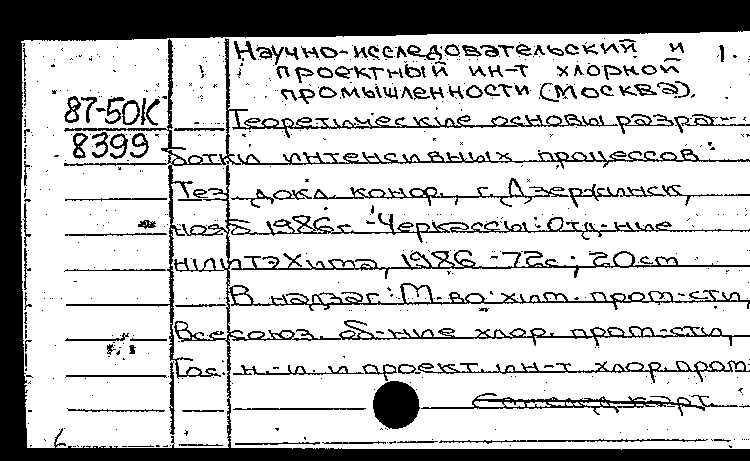 Научно-исследовательский и 1.
проектный ин-т хлорной
промышленности (Москва).
87-50К
8399
Теоретические основы разра-
ботки интенсивных процессов:
Тез. докл. конф., г. Дзержинск,
нояб 1986г. - Черкассы: Отд-ние
НИИТЭХима, 1986 - 72с.; 20см
В надзаг: М-во хим. пром-сти,
Всесоюз. об-ние хлор. пром-сти,
Гос. н.-и. и проект. ин-т хлор. пром
См. след. карт.
6